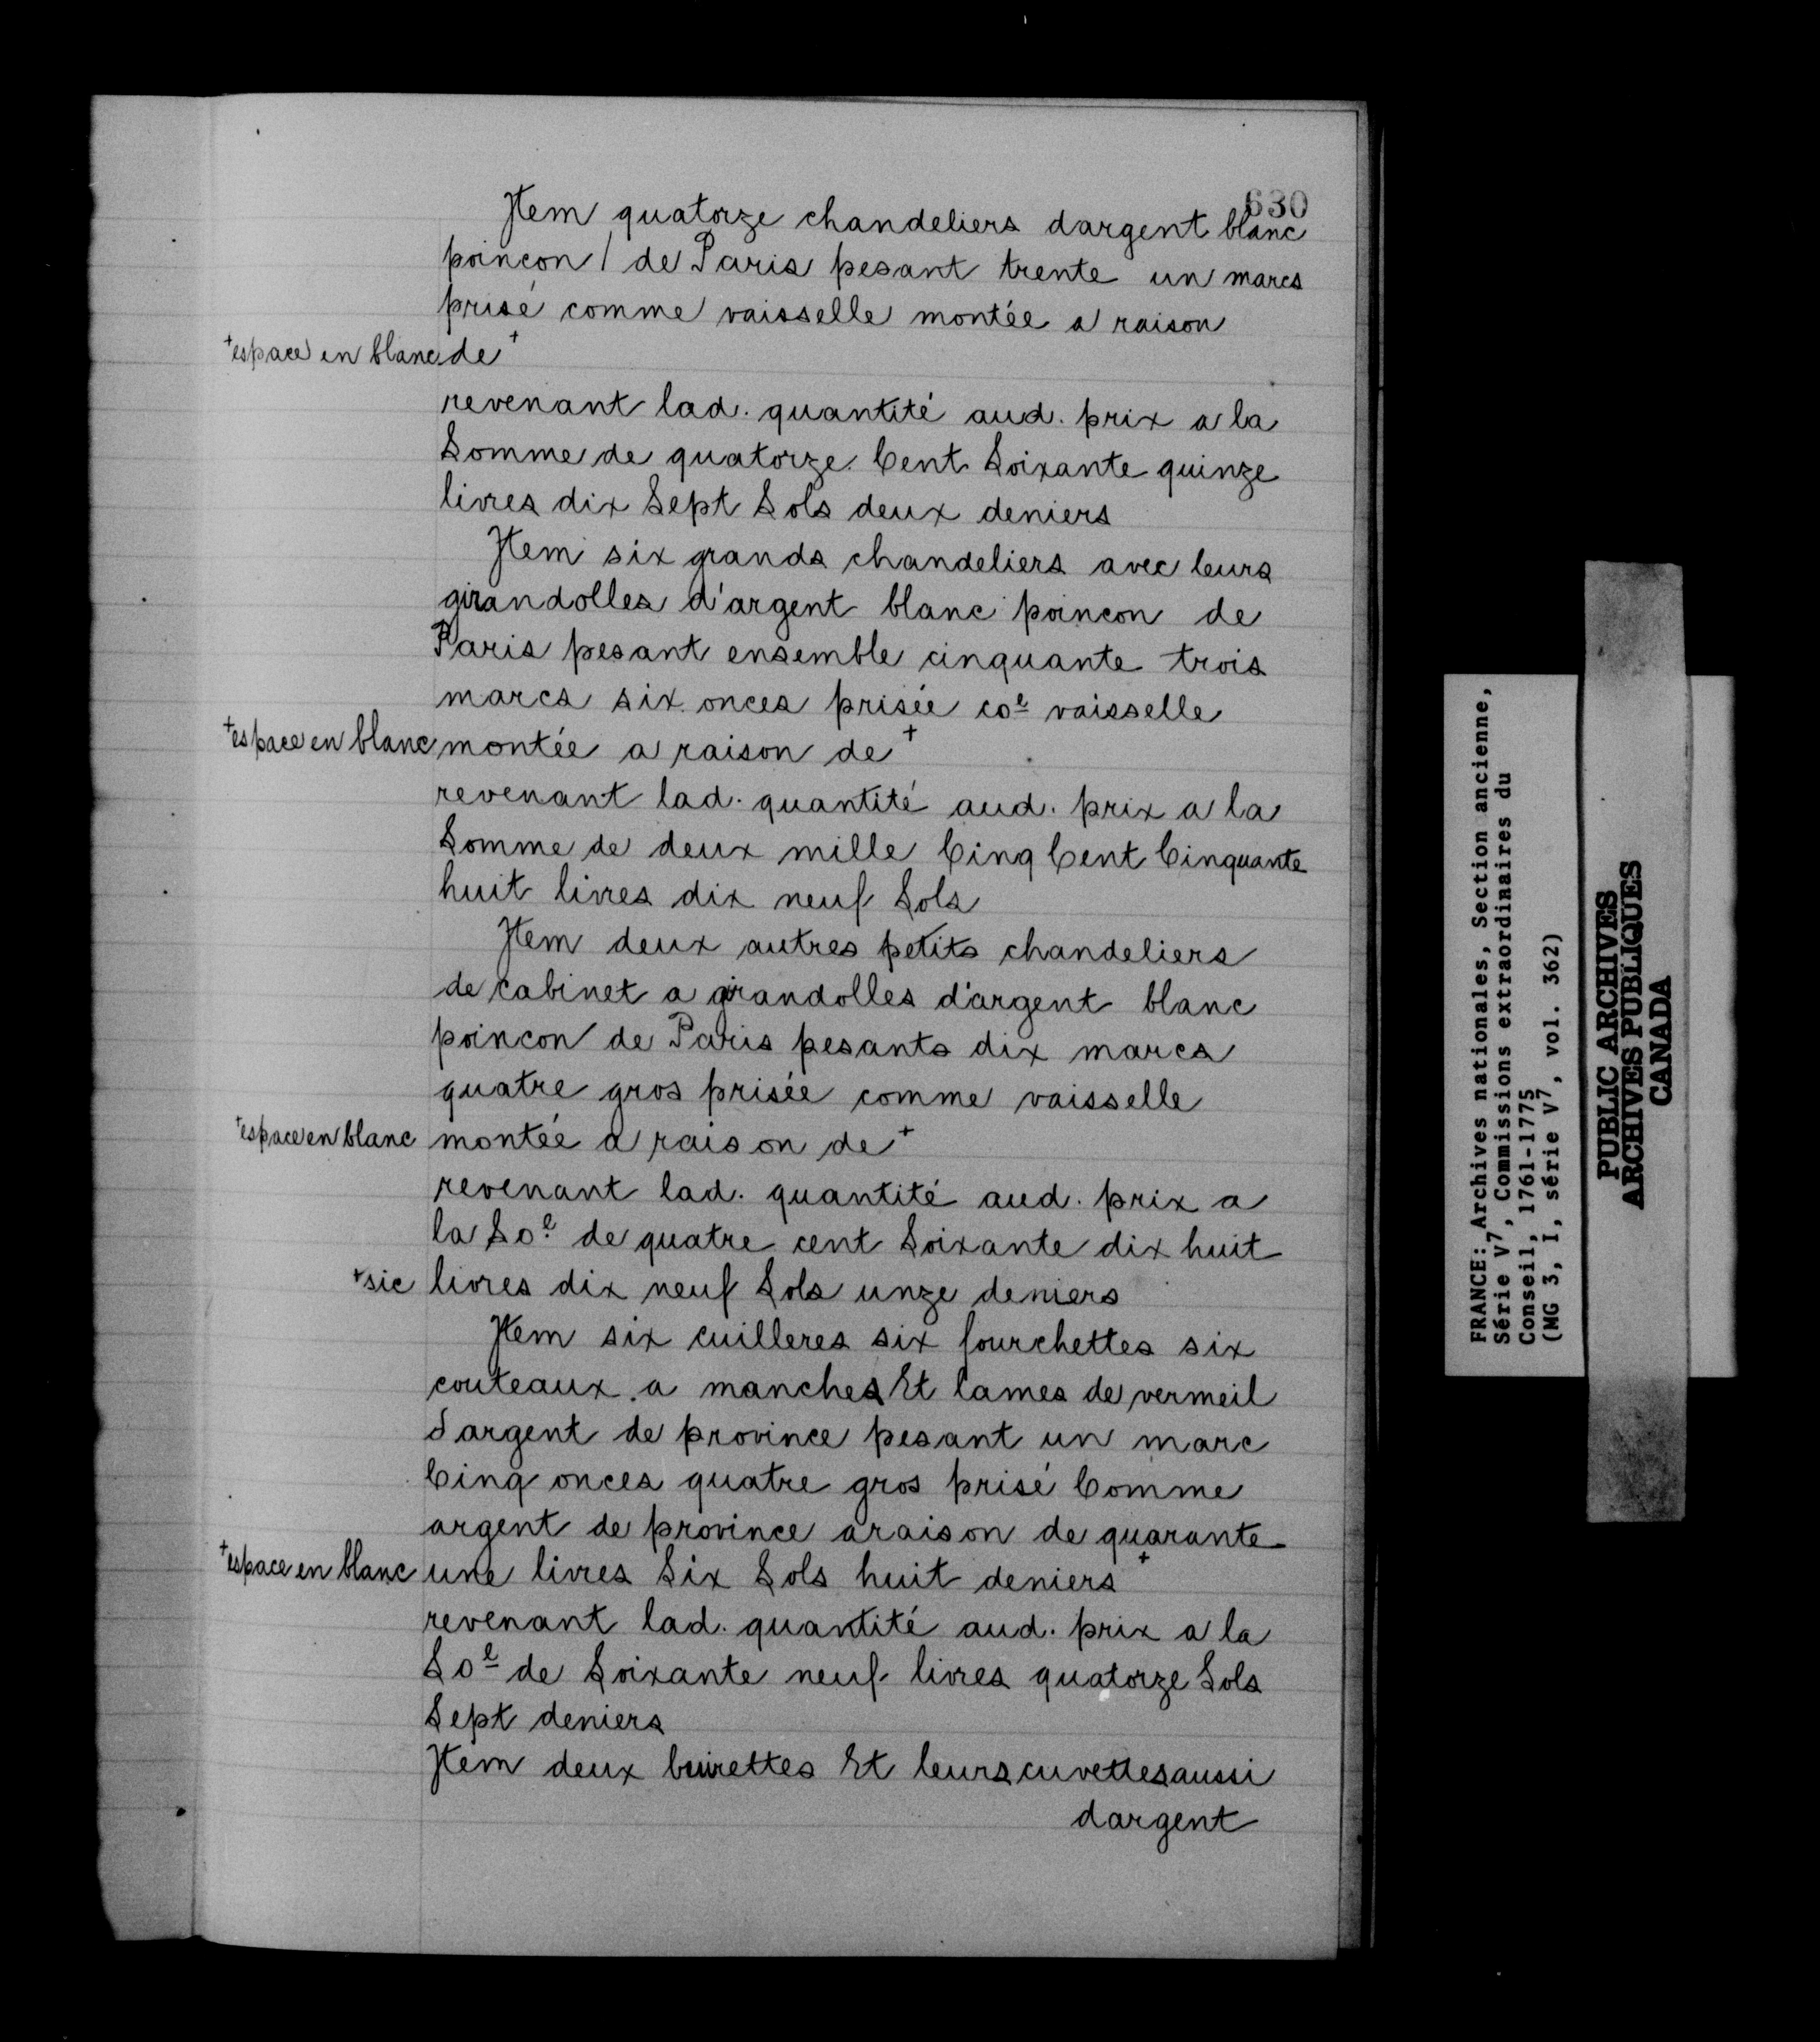 630
Item quatorze chandeliers dargent blanc
poincon / de Paris pesant trente un marcs
prisé comme vaisselle montée a raison
+espace en blanc de +
revenant lad. quantité aud. prix a la
Somme de quatorze Cent Soixante quinze
livres dix Sept Sols deux deniers
Item six grands chandeliers avec leurs
girandolles d'argent blanc poincon de
Paris pesant ensemble cinquante trois
marcs six onces prisée coe vaisselle
+espace en blanc montée a raison de +
revenant lad. quantité aud. prix a la
Somme de deux mille Cinq Cent Cinquante
huit livres dix neuf Sols
Item deux autres petits chandeliers
de cabinet a girandolles d'argent blanc
poincon de Paris pesants dix marcs
quatre gros prisée comme vaisselle
+espace en blanc montée a raison de +
revenant lad. quantité aud. prix a
la Soe de quatre cent Soixante dix huit
+sic livres dix neuf Sols unze deniers
Item six cuilleres six fourchettes six
couteaux a manches Et lames de vermeil
dargent de province pesant un marc
Cinq onces quatre gros prisé Comme
argent de province araison de quarante
+espace en blanc une livres Six Sols huit deniers +
revenant lad. quantité aud. prix a la
Soe de Soixante neuf livres quatorze Sols
Sept deniers
Item deux buirettes Et leurs cuvettes aussi
dargent
FRANCE: Archives nationales, Section ancienne,
Série V7, Commissions extraordinaires du
Conseil, 1761-1775
(MG 3, I, série V7, vol. 362)
PUBLIC ARCHIVES
ARCHIVES PUBLIQUES
CANADA